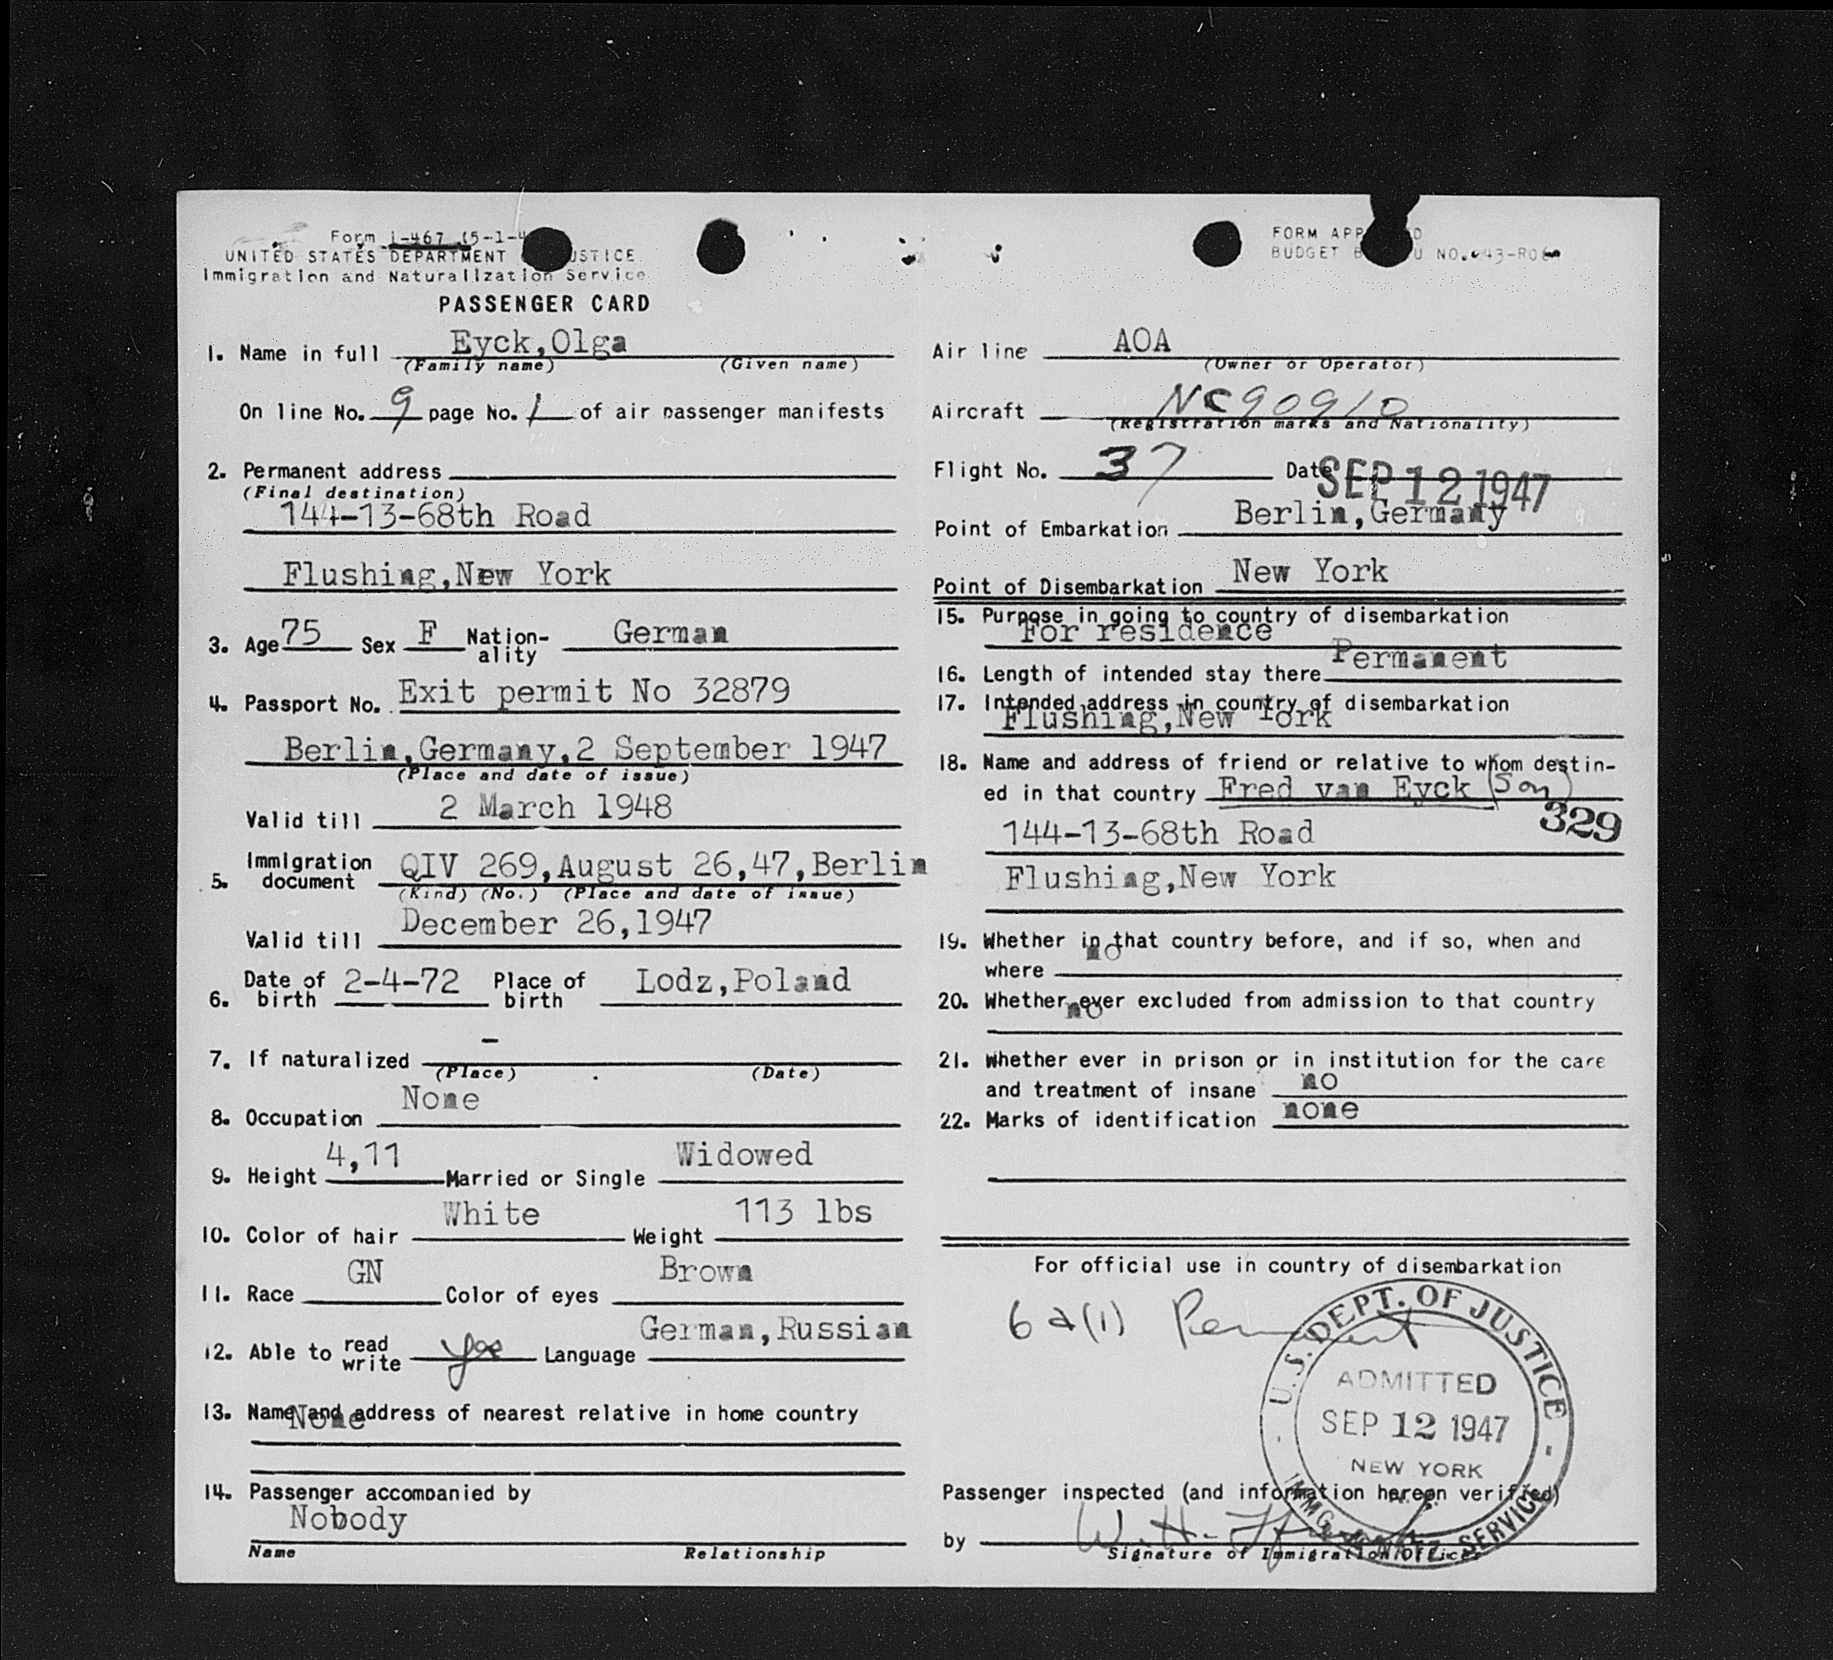 Form I-467 (5-1-4
UNITED STATES DEPARTMENT JUSTICE
Immigration and Naturalization Service
PASSENGER CARD
1. Name in full Eyck,Olga
(Family name) (Given name)
On line No. 9 page No. 1 of air passenger manifests
2. Permanent address
(Final destination)
144-13-68th Road
Flushing,New York
3. Age 75 Sex F Nation-ality German
4. Passport No. Exit permit No 32879
Berlin,Germany,2 September 1947
(Place and date of issue)
Valid till 2 March 1948
5. Immigration document QIV 269,August 26,47,Berlin
(Kind) (No.) (Place and date of issue)
Valid till December 26,1947
6. Date of birth 2-4-72 Place of birth Lodz,Poland
7. If naturalized -
(Place) (Date)
8. Occupation None
9. Height 4,11 Married or Single Widowed
10. Color of hair White Weight 113 lbs
11. Race GN Color of eyes Brown
12. Able to read write yes Language German,Russian
13. Name and address of nearest relative in home country
None
14. Passenger accompanied by
Nobody
Name Relationship
FORM APP
BUDGET B U NO. 43-R06
Air line AOA
(Owner or Operator)
Aircraft NC90910
(Registration marks and Nationality)
Flight No. 37 Date SEP 12 1947
Point of Embarkation Berlin,Germany
Point of Disembarkation New York
15. Purpose in going to country of disembarkation
For residence
16. Length of intended stay there Permanent
17. Intended address in country of disembarkation
Flushing,New York
18. Name and address of friend or relative to whom destin-
ed in that country Fred van Eyck (Son)
329
144-13-68th Road
Flushing,New York
19. Whether in that country before, and if so, when and
where no
20. Whether ever excluded from admission to that country
no
21. Whether ever in prison or in institution for the care
and treatment of insane no
22. Marks of identification none
For official use in country of disembarkation
6a(1) Permanent
U.S. DEPT. OF JUSTICE
ADMITTED
SEP 12 1947
NEW YORK
IMMG. SERVICE
Passenger inspected (and information hereon verified)
by W. H.
Signature of Immigration Officer